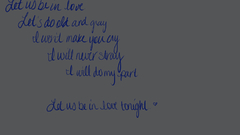 Let us be in love
Let's do old and grey
I won't make you cry
I will never stray
I will do my part
Let us be in love tonight